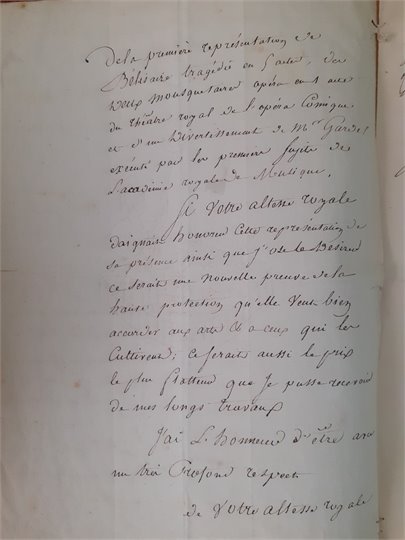 De la première représentation de
Bélisaire tragédie en 5 actes, des
deux mousquetaires opéra en 1 acte
du théâtre royal de l'opéra Comique.
et d'un Divertissement de Mr Gardel
exécuté par les premiers sujets de
L'académie royale de Musique.
Si Votre altesse royale
daignait honorer cette représentation de
sa présence ainsi que j'ose le Désirer
ce serait une nouvelle preuve de la
haute protection qu'elle veut bien
accorder aux arts et a ceux qui les
Cultivent; ce serait aussi le prix
le plus flatteur que je pusse recevoir
de mes longs travaux
J'ai L'honneur d'être avec
un très Profond respect
de Votre altesse royale